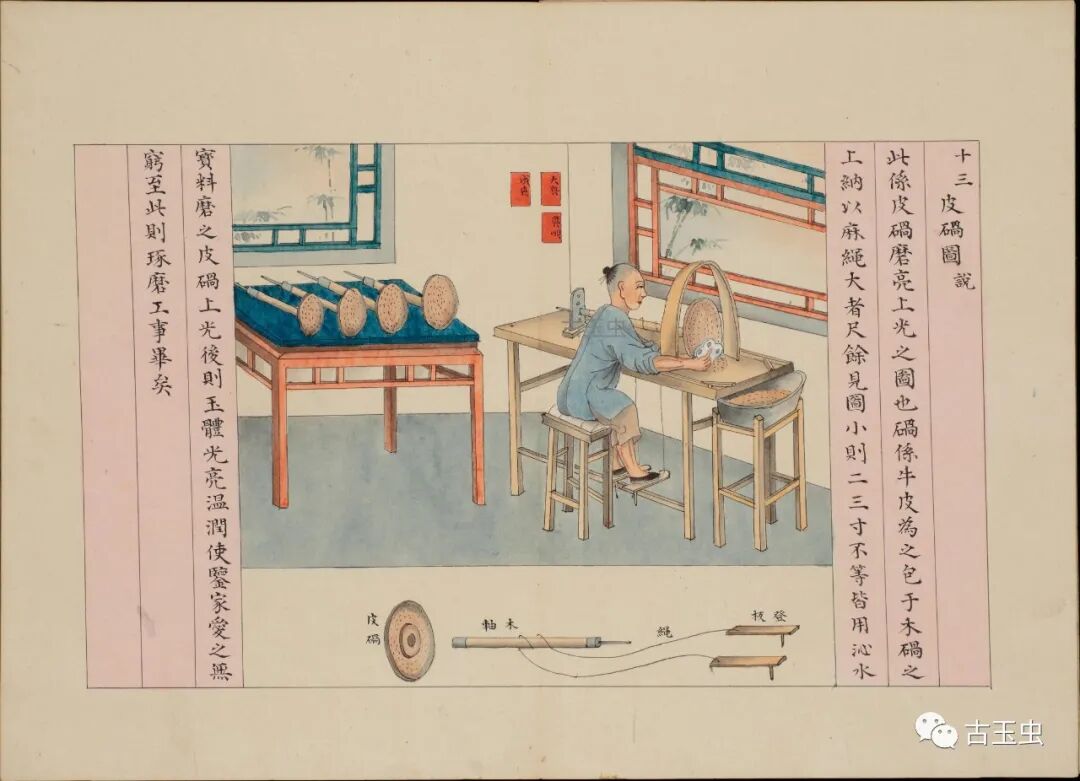 十三 皮碢圖說
此係皮碢磨亮上光之圖也碢係牛皮為之包于木碢之
上納以麻繩大者尺餘見圖小則二三寸不等皆用沁水
寶料磨之皮碢上光後則玉體光亮溫潤使鑒家愛之無
窮至此則琢磨工事畢矣
皮碢
木軸
繩
登板
古玉虫
古玉虫